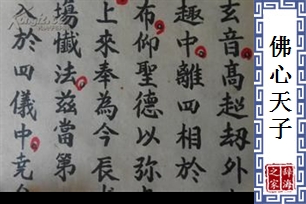 佛心天子
辭海
之家
玄音高超劫外
趣中離四相於
布仰聖德以弥
上來奉為今長
場懺法茲當第
入於四儀中